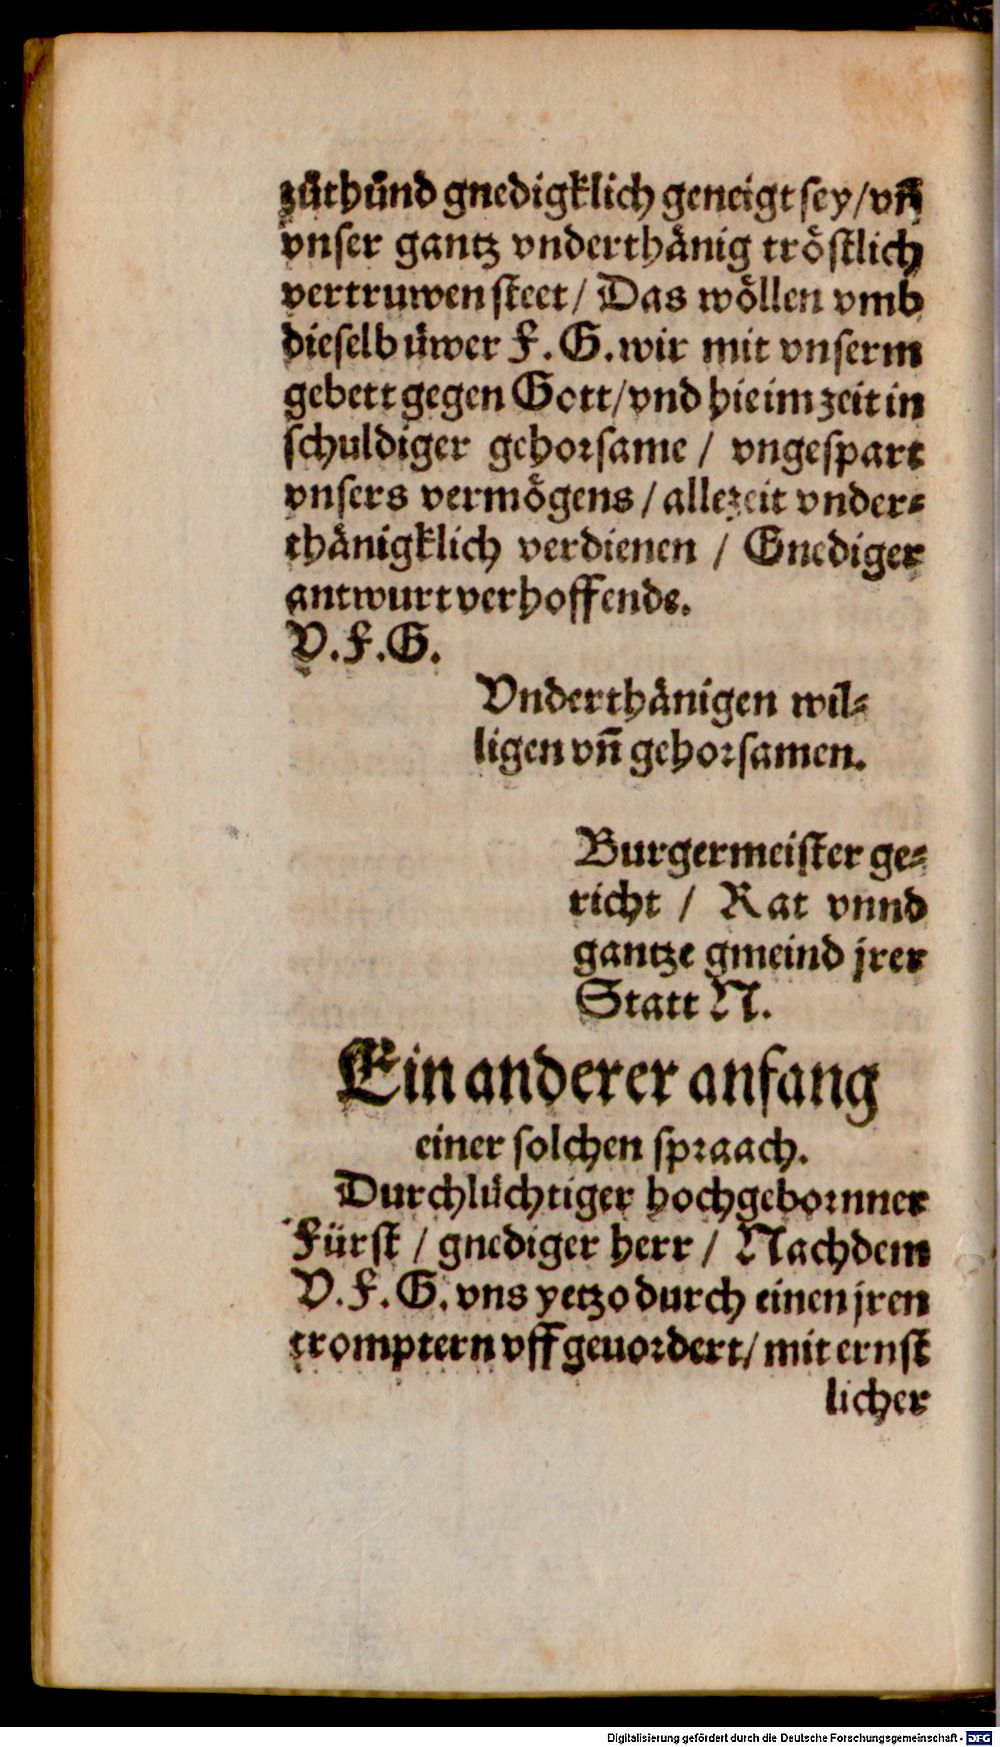 zůthůnd gnedigklich geneigt sey/vñ
vnser gantz vnderthånig tröstlich
vertruwen steet/ Das wöllen vmb
dieselb üwer F.G.wir mit vnserm
gebett gegen Gott/vnd hie im zeit in
schuldiger gehorsame / vngespart
vnsers vermögens / allezeit vnder⸗
thånigklich verdienen / Gnediger
antwurt verhoffende.
V.F.G.
Vnderthånigen wil⸗
ligen vñ gehorsamen.
Burgermeister ge⸗
richt / Rat vnnd
gantze gmeind jrer
Statt N.
Ein anderer anfang
einer solchen spraach.
Durchlüchtiger hochgebornner
Fürst / gnediger herr / Nachdem
V.F.G. vns yetzo durch einen jren
tromptern vff geuordert/ mit ernst
licher
Digitalisierung gefördert durch die Deutsche Forschungsgemeinschaft - DFG